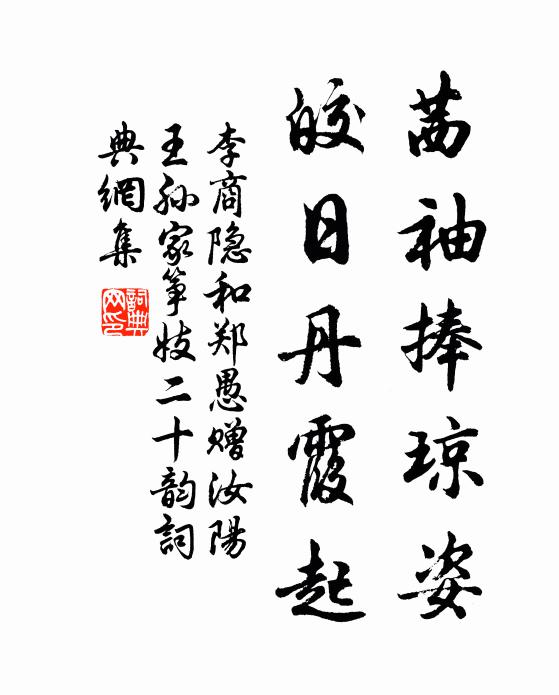 茜袖捧琼姿
皎日丹霞起
李商隐和郑愚赠汝陽
王孙家筝妓二十韵詞
典網集
詞典
网印